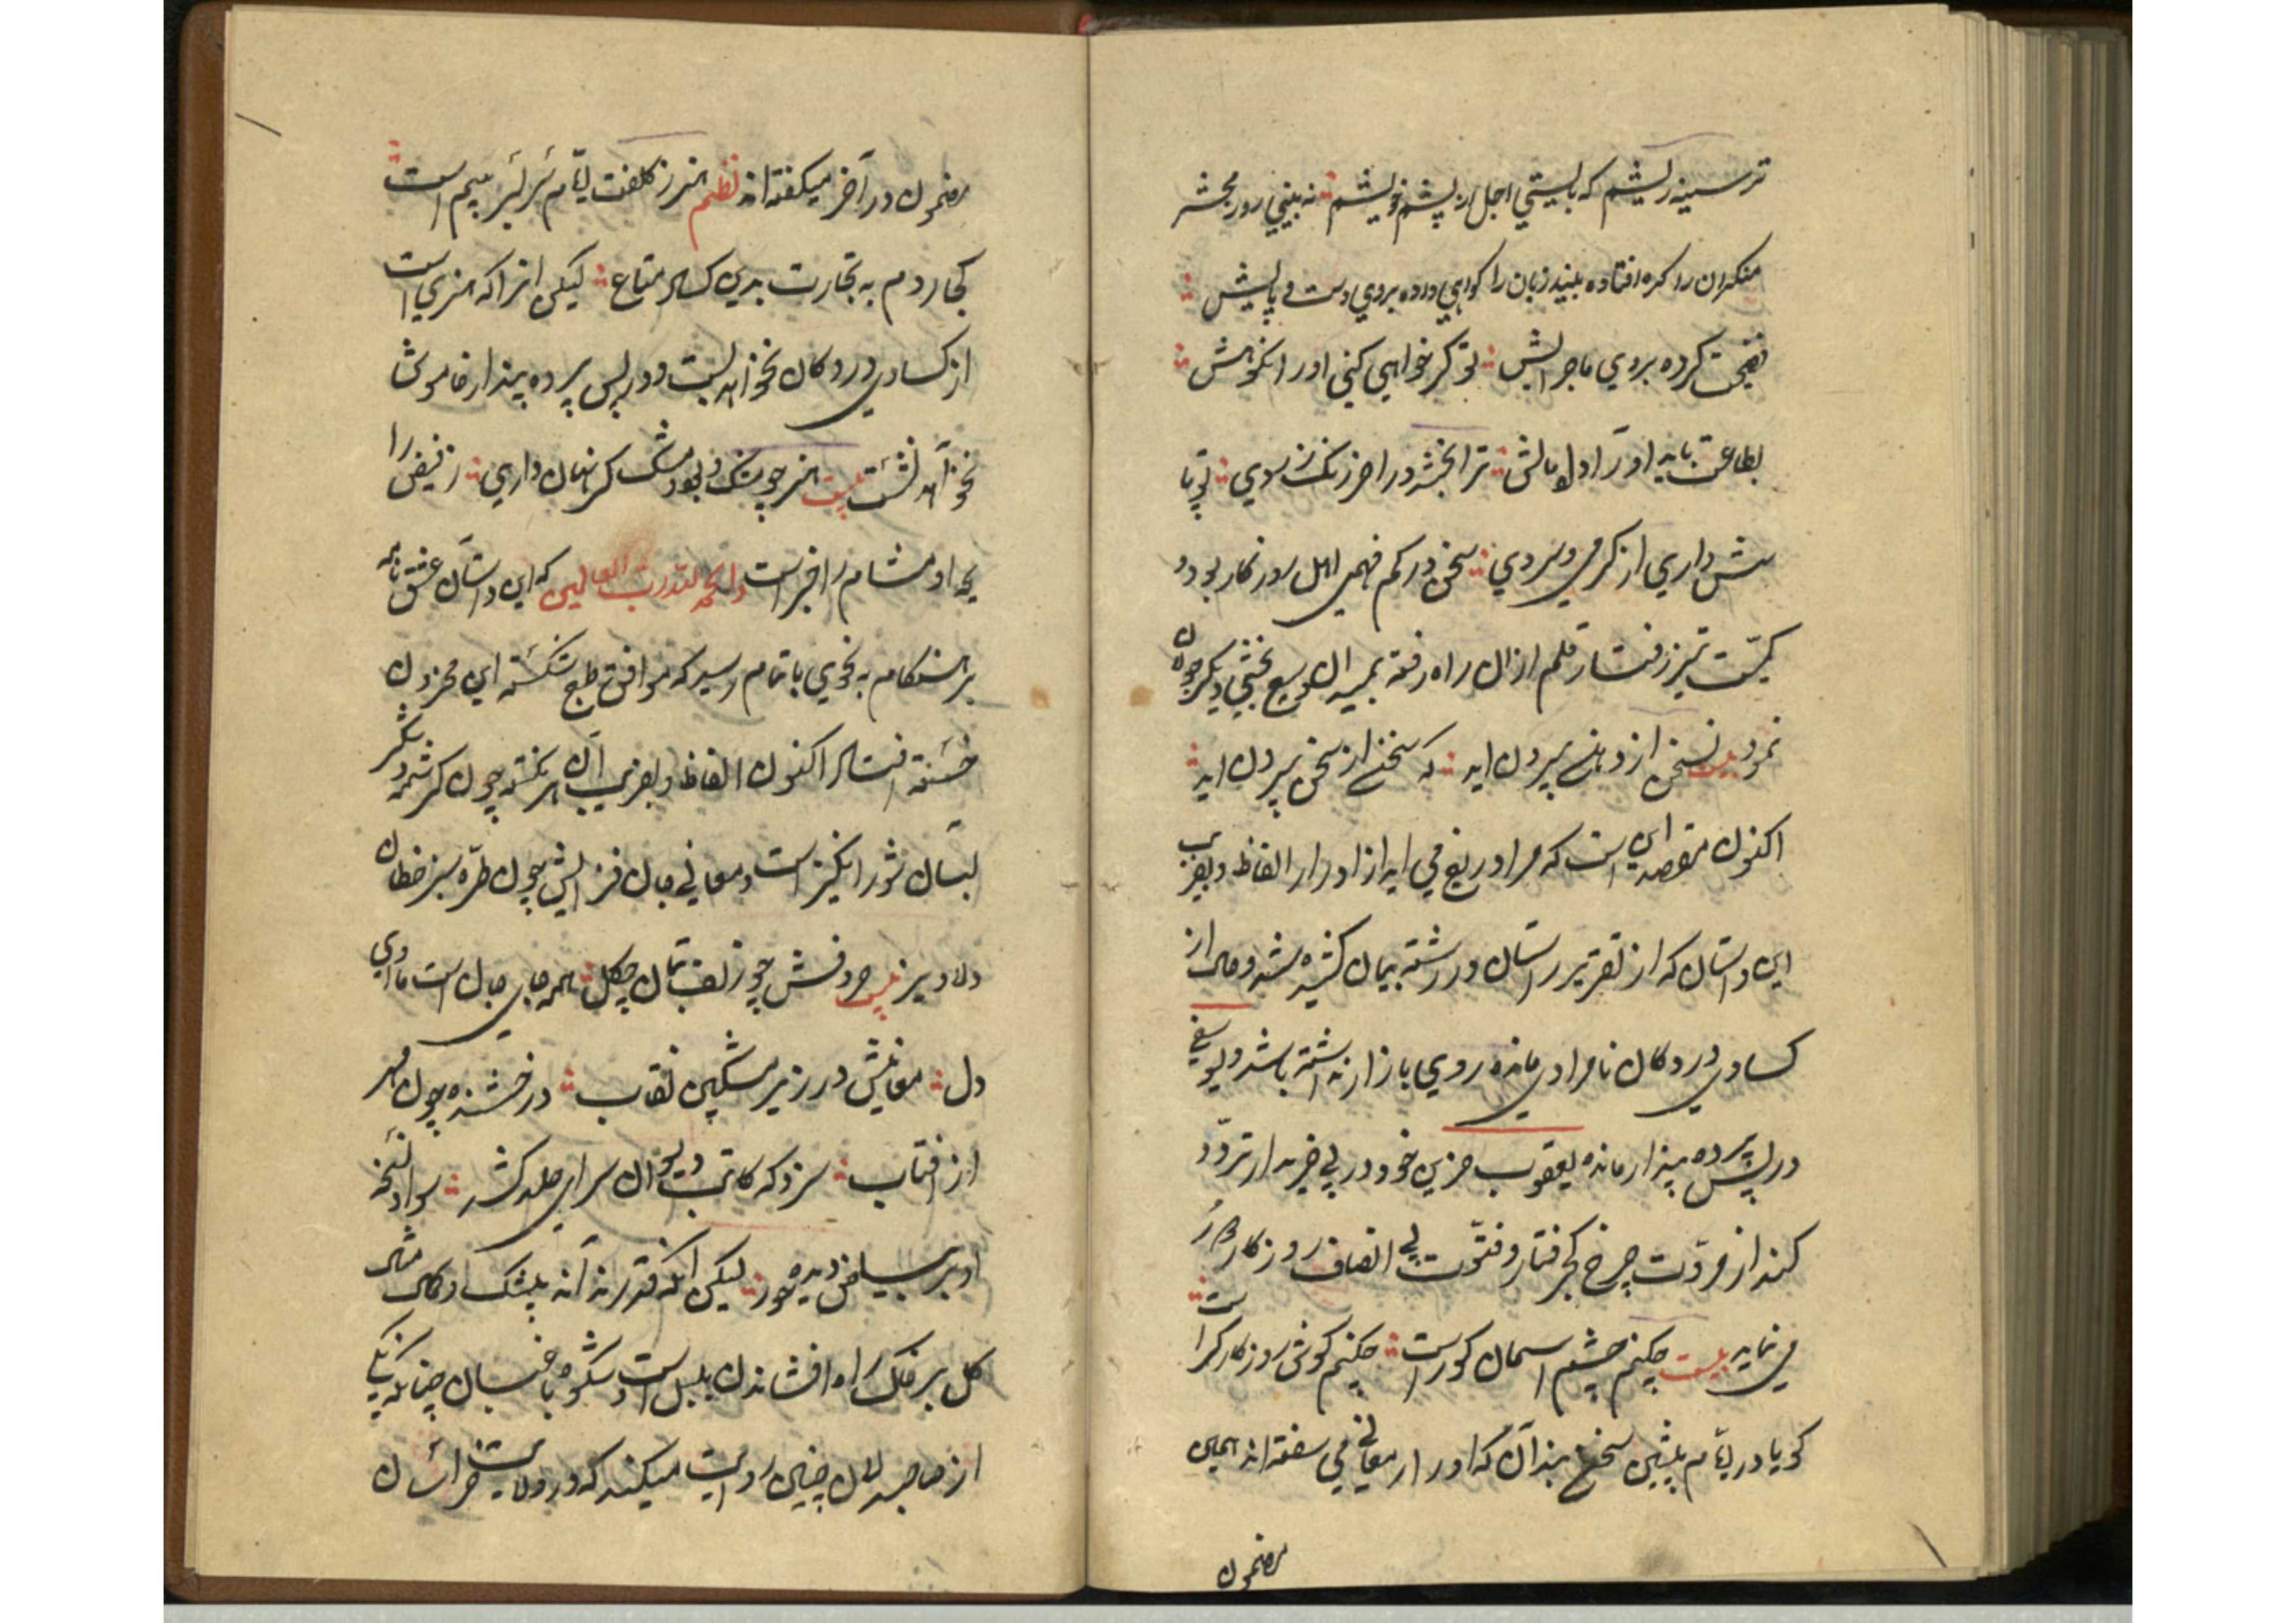 ترسینه ریشم که بایستی اجل از پشم خویشم نه بینی روز محشر
منکران را کره افتاده بیند زبان را کواهی داده بروی دست و پایش
فضیحت کرده بروی ماجرایش تو کر خواهی کنی اورا نکوهش
بطاعت باید او را دل و بالش ترا بخشد در اخر زنک زردی تو پا
شش داری از کرمی و سردی سخن در کم فهمی اهل روزکار بود و
کمیت تیز رفتار قلم ازان راه رفته بمیدان وسیع بخشی دیکر جولان
نمود بیت سخن از دهانم بیرون اید که سخن از سخن بیرون اید
اکنون مقصد این است که مرا دریغ می اید از ادرار الفاظ دلفریب
این داستان که از تقریر راستان در رشته بیان کشیده شد و حال از
کسادی در دکان نامرادی مانده روی بازار نداشته باشد و یوسفی
در پس پرده پندار مانده یعقوب حزین خود در پی خریدار تردّد
کند از مروّت چرخ کجرفتار و فتوّت بی انصاف روزکار دور
می نماید بیت چکنم چشم اسمان کور است چکنم کوش روزکار کر است
کویا در ایّام پیشین سخن بندان که در ار معانی می سفته اند همین
مضمون
مضمون در آخر میکفته اند نظم هنر ز کلفت ایّام سر بسر بیم است
کجا روم به تجارت بدین کساد متاع لیکن انرا که هنری است
از کسادی در دکان نخواهد بست و در پس پرده پندار خاموش
نخواهد نشست بیت هنر چو مشک بود مشک کر نهان داری ز فیض را
یحه او مشام را خبر است والحمد لله رب العالمین که این داستان عشق نامه
بر هنکام به نحوی باتمام رسید که موافق طبع شکسته این محزون
خسته افتاد اکنون الفاظ دلفریب آن هر نکته چون کرشمه شکر
لبان شور انکیز است و معانی جان فزایش چون طرّه سبز خطان
دلاویز بیت حروفش چو زلف بتان چکل همه جای جان است ماوای
دل معانیش در زیر مشکین نقاب درخشنده چون مهر
از افتاب سزد که کاتب دیوان سرای خلد کشد سواد نسخه
او بر بیاض دیده حور لیکن انکه قدر نداند پیشک او کان مثال
کل بر فلک راه افشاندن بلبل است و شکوه باغبان چنانکه یکی
از صاحبدلان چنین روایت میکند که در ولایت خراسان